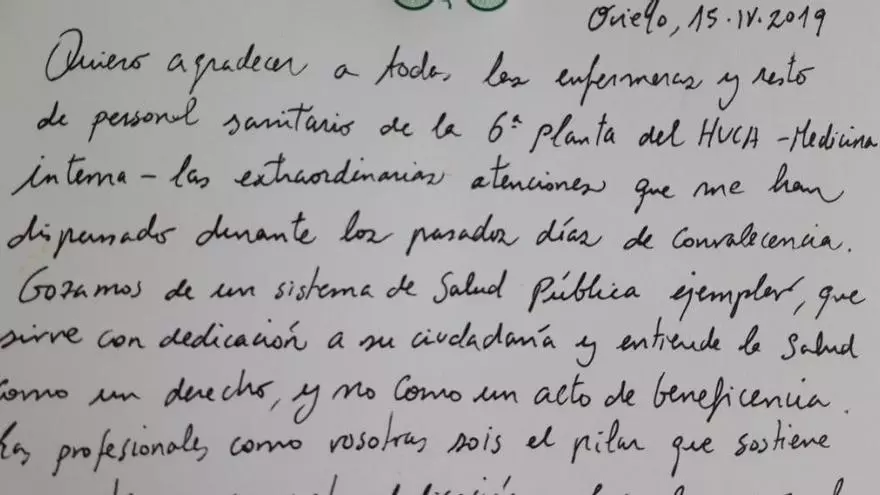 Oviedo, 15.IV.2019
Quiero agradecer a todas las enfermeras y resto
de personal sanitario de la 6ª planta del HUCA - Medicina
interna - las extraordinarias atenciones que me han
dispensado durante los pasados días de convalecencia.
Gozamos de un sistema de Salud Pública ejemplar, que
sirve con dedicación a su ciudadanía y entiende la Salud
como un derecho, y no como un acto de beneficencia.
Las profesionales como vosotras sois el pilar que sostiene